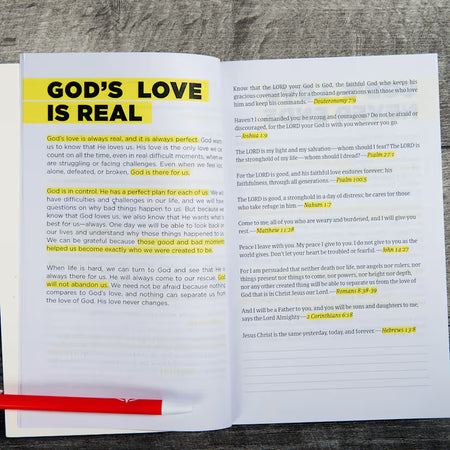 GOD'S LOVE
IS REAL
God's love is always real, and it is always perfect. God wants
us to know that He loves us. His love is the only love we can
count on all the time, even in real difficult moments, when we
are struggling or facing challenges. Even when we feel lost,
alone, defeated, or broken, God is there for us.
God is in control. He has a perfect plan for each of us. We will
have difficulties and challenges in our life, and we will have
questions on why bad things happen to us. But because we
know that God loves us, we also know that He wants what is
best for us—always. One day we will be able to look back on
our lives and understand why those things happened to us.
We can be grateful because those good and bad moments
helped us become exactly who we were created to be.
When life is hard, we can turn to God and see that He is
always there for us. He will always come to our rescue. God
will not abandon us. We need not be afraid because nothing
compares to God's love, and nothing can separate us from
the love of God. His love never changes.
Know that the LORD your God is God, the faithful God who keeps his
gracious covenant loyalty for a thousand generations with those who love
him and keep his commands.—Deuteronomy 7:9
Haven't I commanded you: be strong and courageous? Do not be afraid or
discouraged, for the LORD your God is with you wherever you go.
—Joshua 1:9
The LORD is my light and my salvation—whom should I fear? The LORD is
the stronghold of my life—whom should I dread?—Psalm 27:1
For the LORD is good, and his faithful love endures forever; his
faithfulness, through all generations.—Psalm 100:5
The LORD is good, a stronghold in a day of distress; he cares for those
who take refuge in him.—Nahum 1:7
Come to me, all of you who are weary and burdened, and I will give you
rest.—Matthew 11:28
Peace I leave with you. My peace I give to you. I do not give to you as the
world gives. Don't let your heart be troubled or fearful.—John 14:27
For I am persuaded that neither death nor life, nor angels nor rulers, nor
things present nor things to come, nor powers, nor height nor depth,
nor any other created thing will be able to separate us from the love of
God that is in Christ Jesus our Lord.—Romans 8:38-39
And I will be a Father to you, and you will be sons and daughters to me,
says the Lord Almighty—2 Corinthians 6:18
Jesus Christ is the same yesterday, today, and forever.—Hebrews 13:8